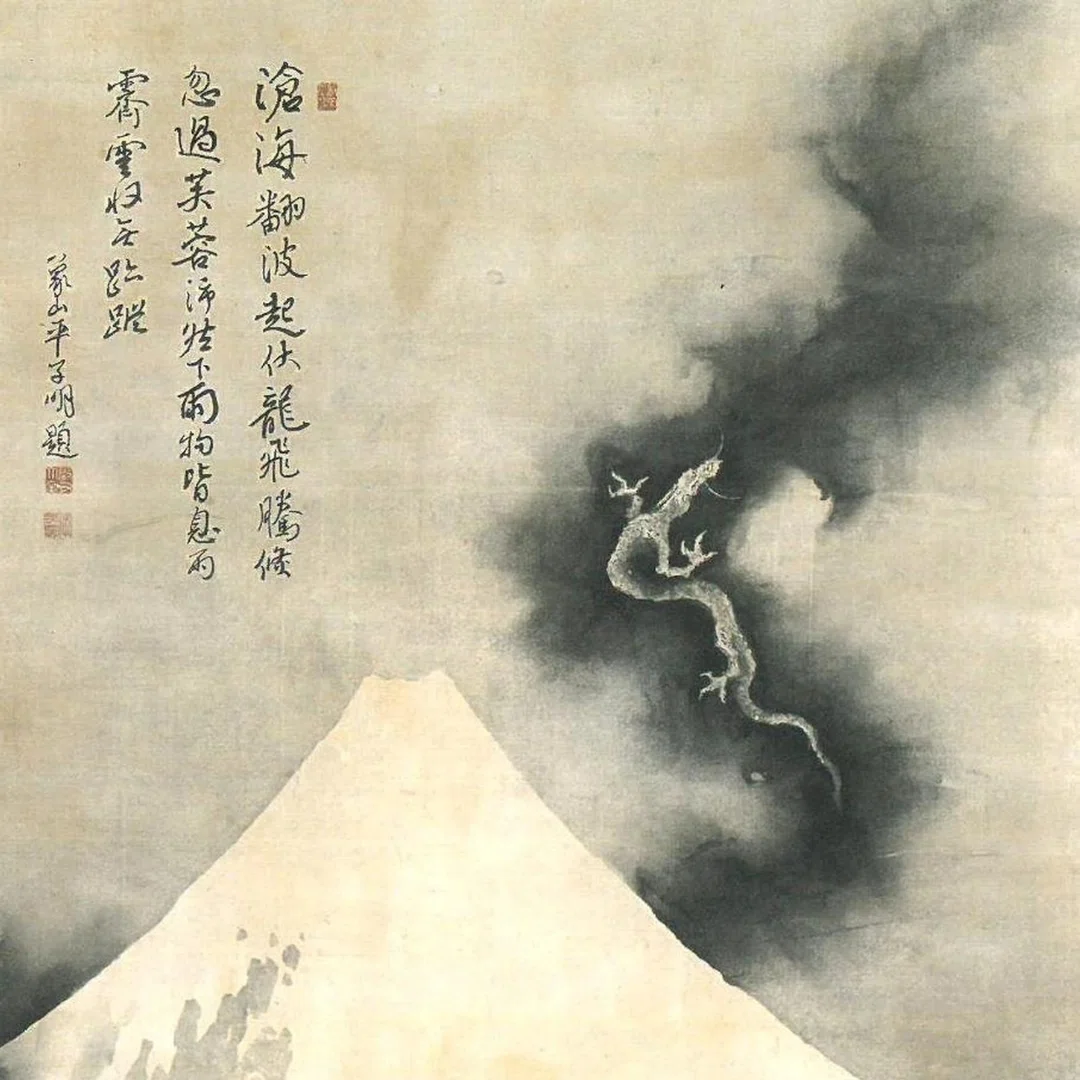 滄海翻波起伏龍飛騰倏
忽過芙蓉沛然下雨物皆息雨
霽雲收無跡蹤
象山平子明題